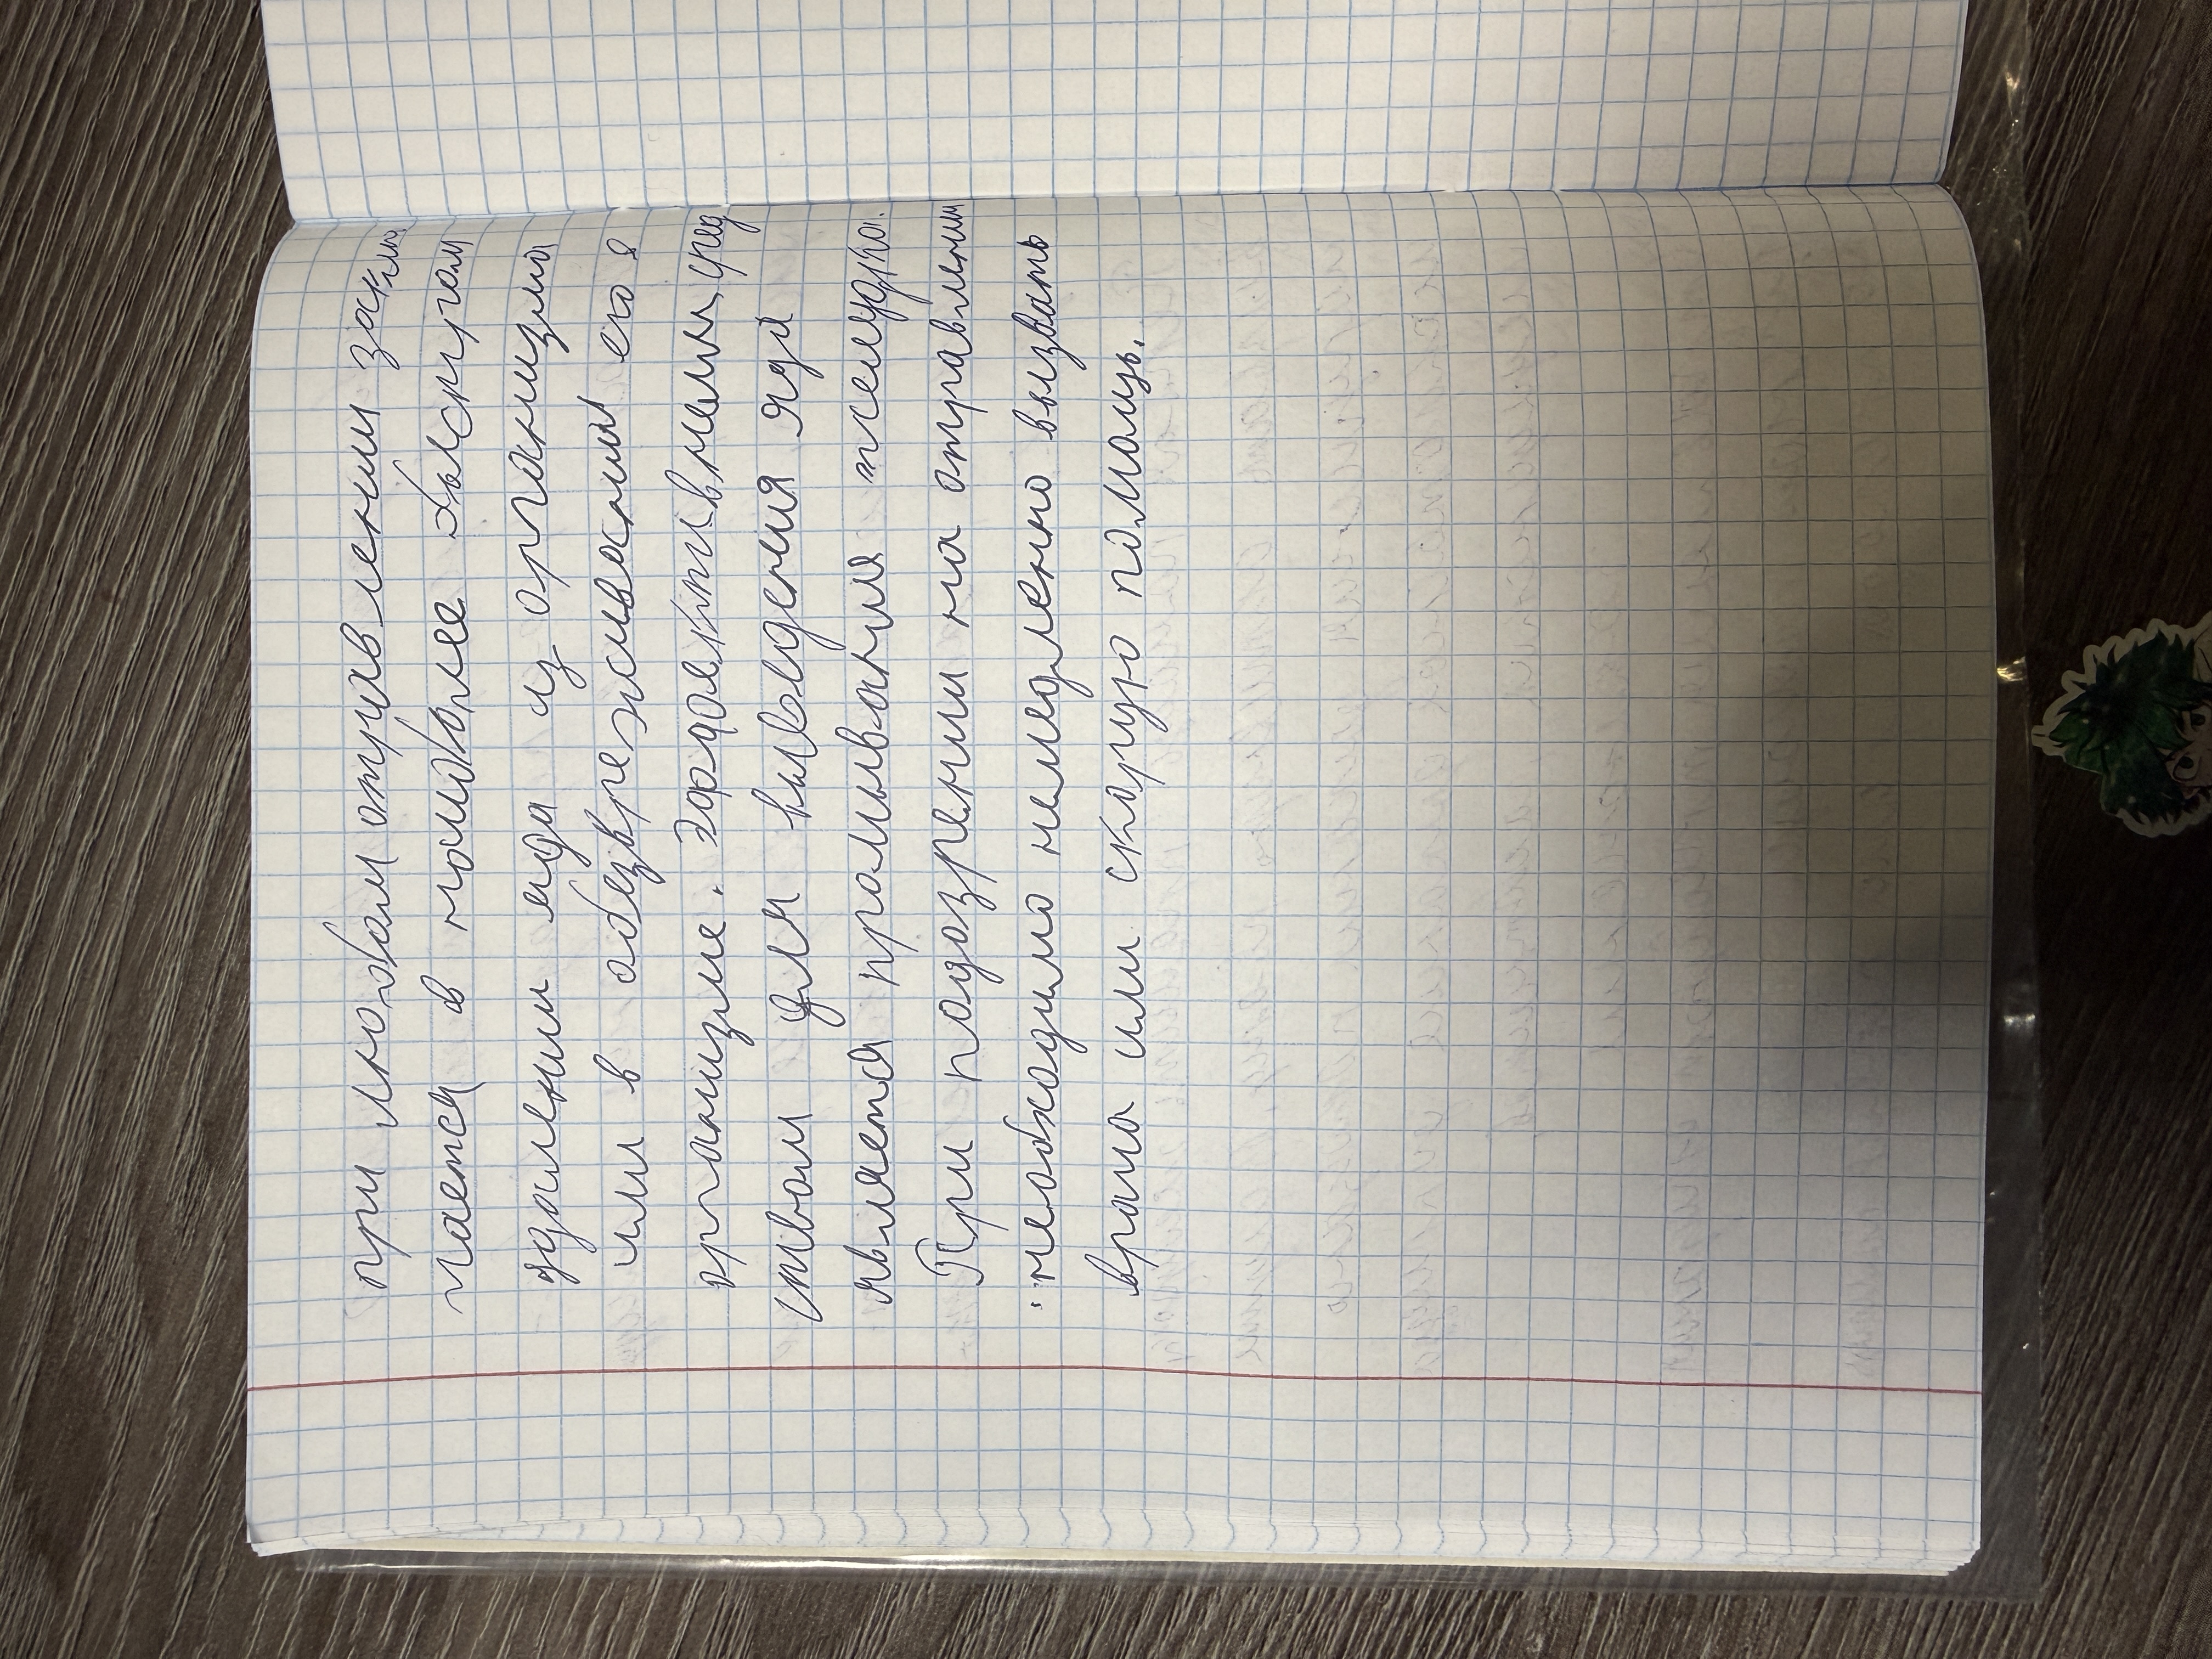 при любом отравлении заклю
чается в наиболее быстром
удалении яда из организма
или в обезвреживании его в
организме. Эффективным сред
ством для выведения яда
является промывания желудка.
При подозрении на отравлении
необходимо немедленно вызвать
врача или скорую помощь.